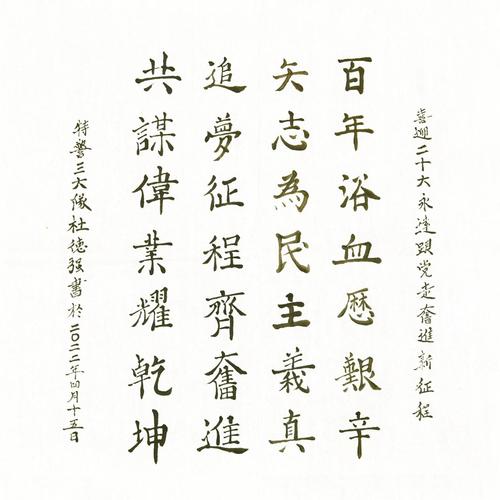 喜迎二十大永逺跟党走奮進新征程
百年浴血歷艱辛
矢志為民主義真
追夢征程齊奮進
共謀偉業耀乾坤
特警三大隊杜德强書於二〇二二年四月十五日